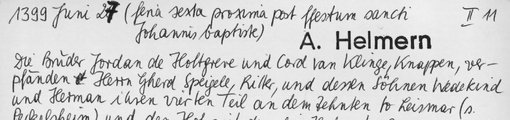 1399 Juni 27 (feria sexta proxima post ffestum sancti II 11
Johannis baptiste)
A. Helmern
Die Brüder Jordan de Holtgreve und Cord van Klinge, Knappen, ver-
pfänden Herrn Gherd Speigele, Ritter, und dessen Söhnen Wedekind
und Herman ihren vierten Teil an dem Zehnten to Reismar (s.